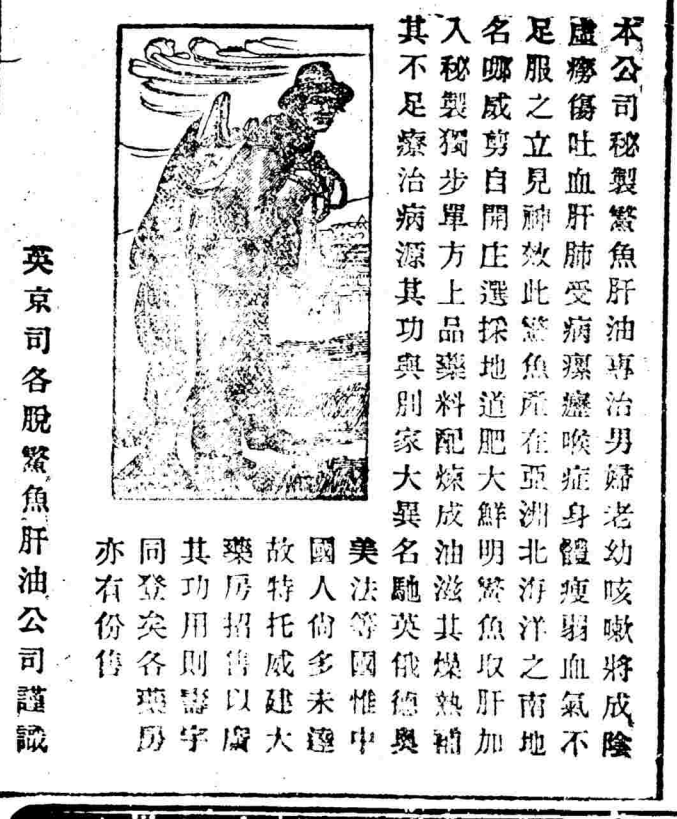 本公司秘製鰵魚肝油專治男婦老幼咳嗽將成陰
虛癆傷吐血肝肺受病瘰癧喉症身體瘦弱血氣不
足服之立見神效此鰵魚產在亞洲北海洋之南地
名哪威剪自開庄選採地道肥大鮮明鰵魚取肝加
入秘製獨步單方上品藥料配煉成油滋其燥熱補
其不足療治病源其功與別家大異名馳英俄德奧
美法等國惟中
國人尙多未達
故特托威建大
藥房招售以廣
其功用則壽宇
同登矣各藥房
亦有份售
英京司各脫鰵魚肝油公司謹識